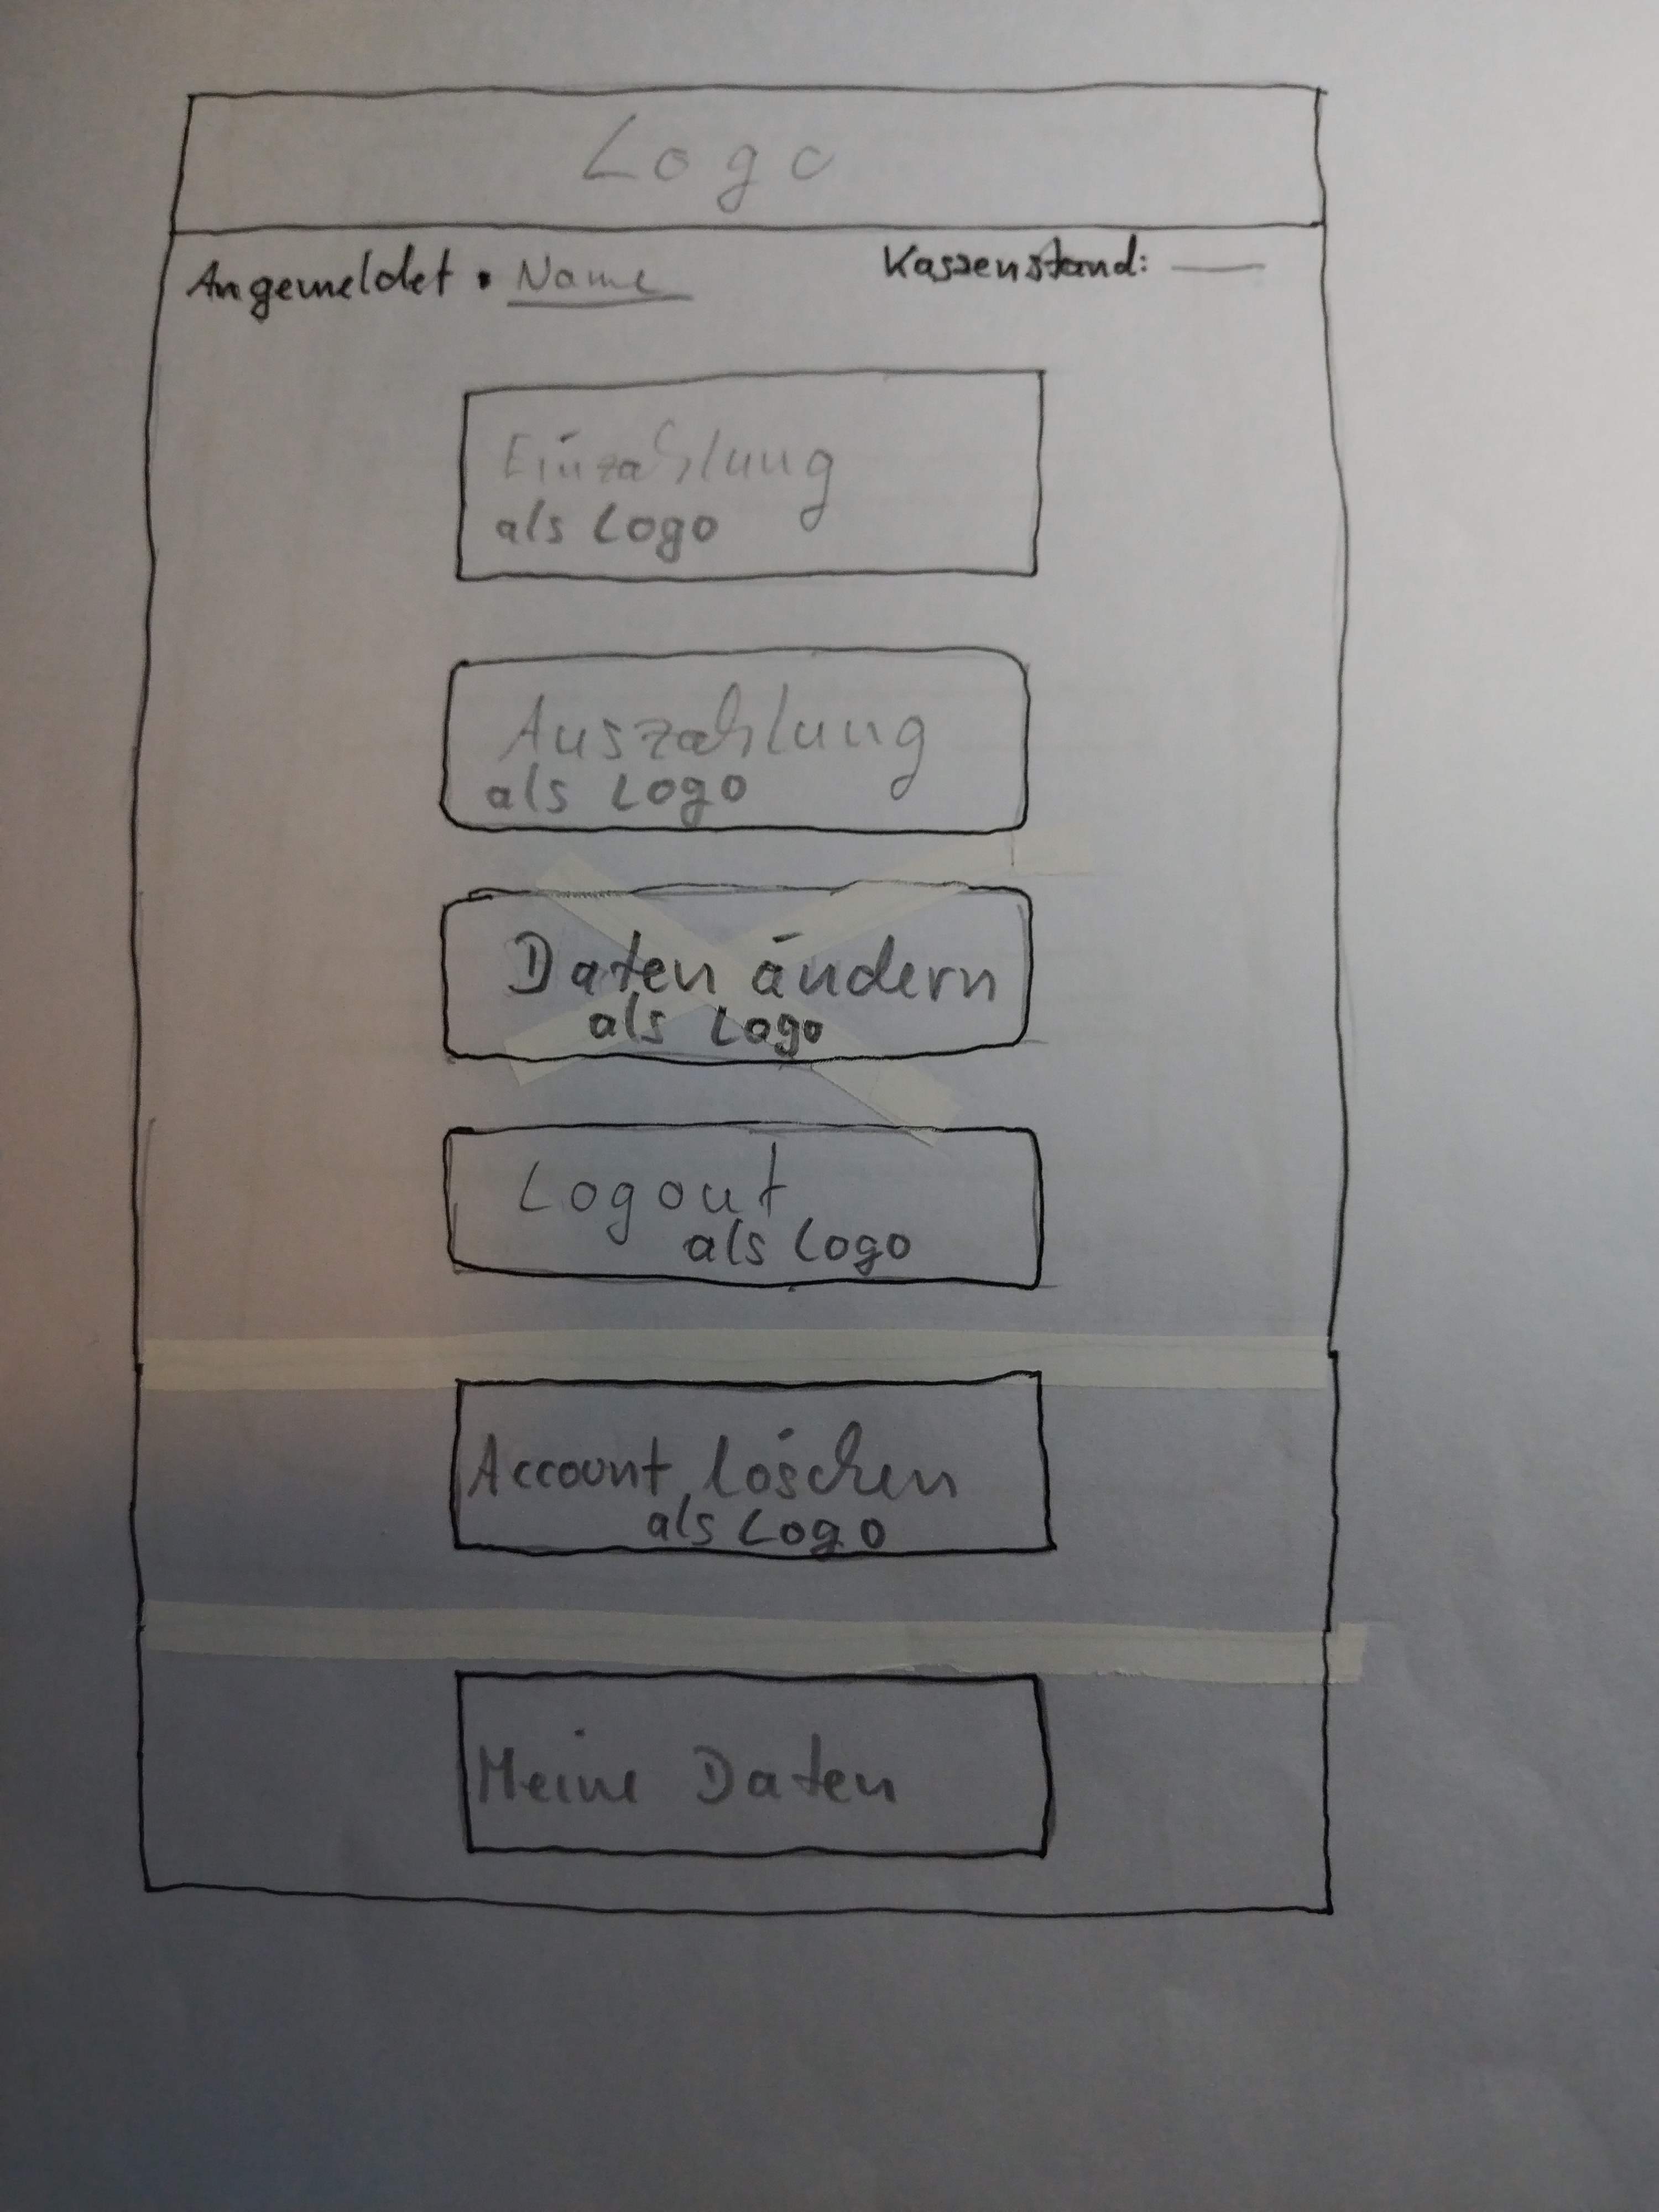 Logo
Angemeldet • Name
Kassenstand:
Einzahlung
als Logo
Auszahlung
als Logo
Daten ändern
als Logo
Logout
als Logo
Account löschen
als Logo
Meine Daten